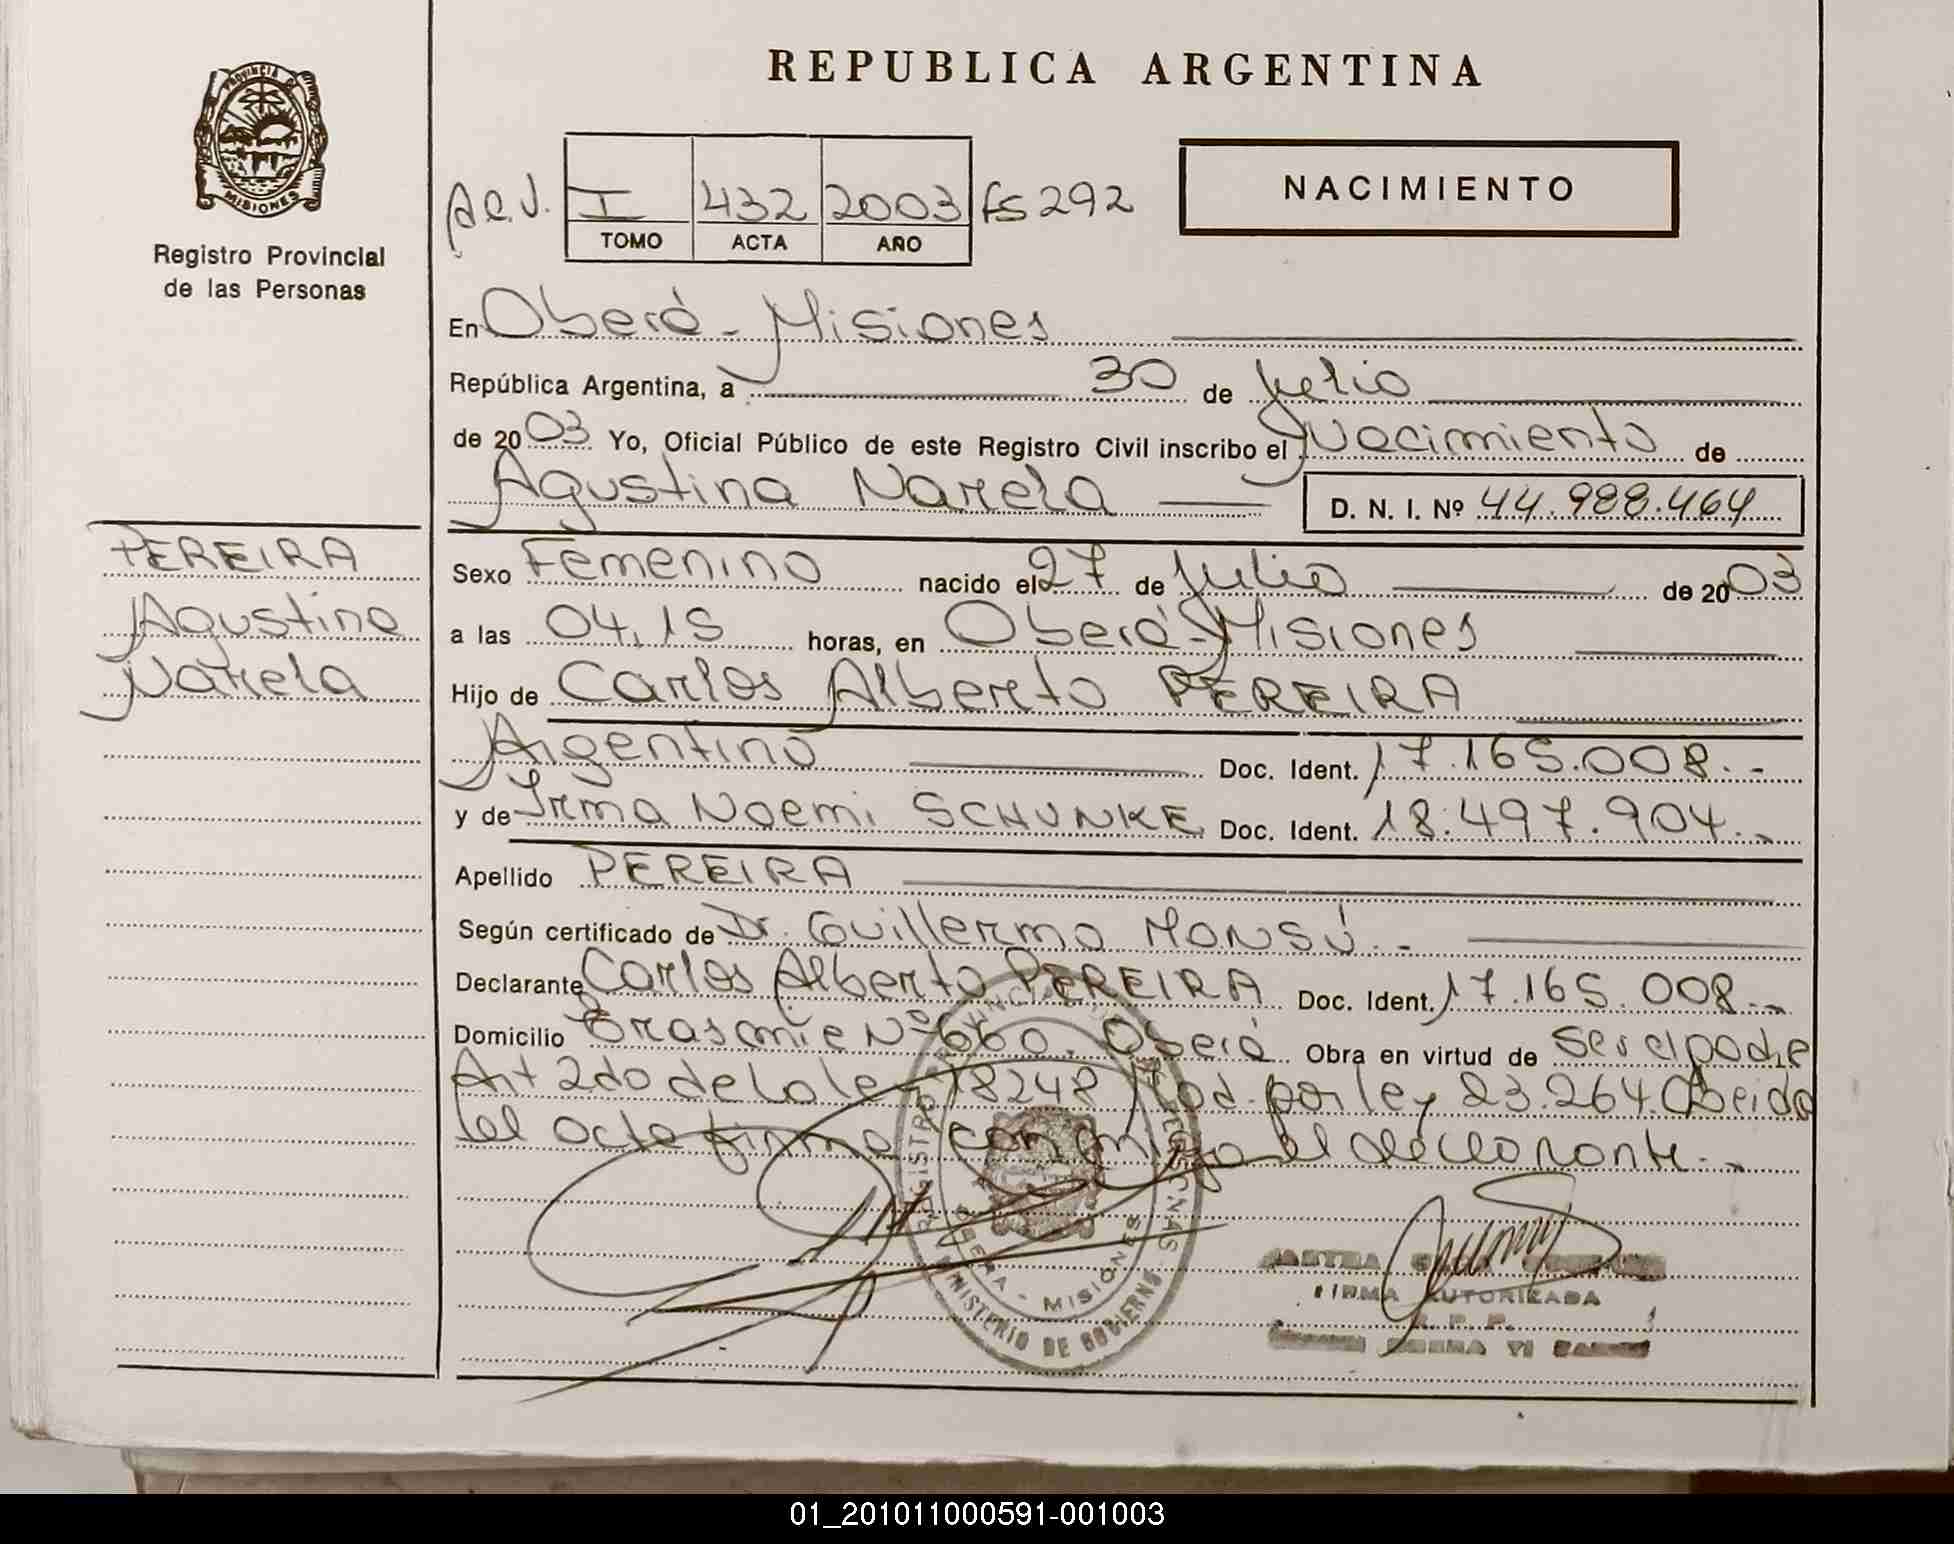 REPUBLICA ARGENTINA
PROVINCIA DE
MISIONES
Registro Provincial
de las Personas
I 432 2003 fs 292
TOMO ACTA AÑO
NACIMIENTO
En Oberá - Misiones
República Argentina, a 30 de Julio
de 2003 Yo, Oficial Público de este Registro Civil inscribo el Nacimiento de
Agustina Narela D. N. I. Nº 44.988.464
PEREIRA
Agustina
Narela
Sexo Femenino nacido el 27 de Julio de 2003
a las 04,15 horas, en Oberá - Misiones
Hijo de Carlos Alberto PEREIRA
Argentino Doc. Ident. 17.165.008.-
y de Irma Noemi SCHUNKE Doc. Ident. 18.497.904.-
Apellido PEREIRA
Según certificado de Dr. Guillermo MONSÚ.-
Declarante Carlos Alberto PEREIRA Doc. Ident. 17.165.008.-
Domicilio Nº 660. Oberá Obra en virtud de ser el padre
Art 2do de la ley 18248 Mod. por ley 23.264. Leida
el acta firma conmigo el declarante.-
REGISTRO PROVINCIAL DE LAS PERSONAS
OBERA - MISIONES
MINISTERIO DE GOBIERNO
FIRMA AUTORIZADA
R. P. P.
01_201011000591-001003